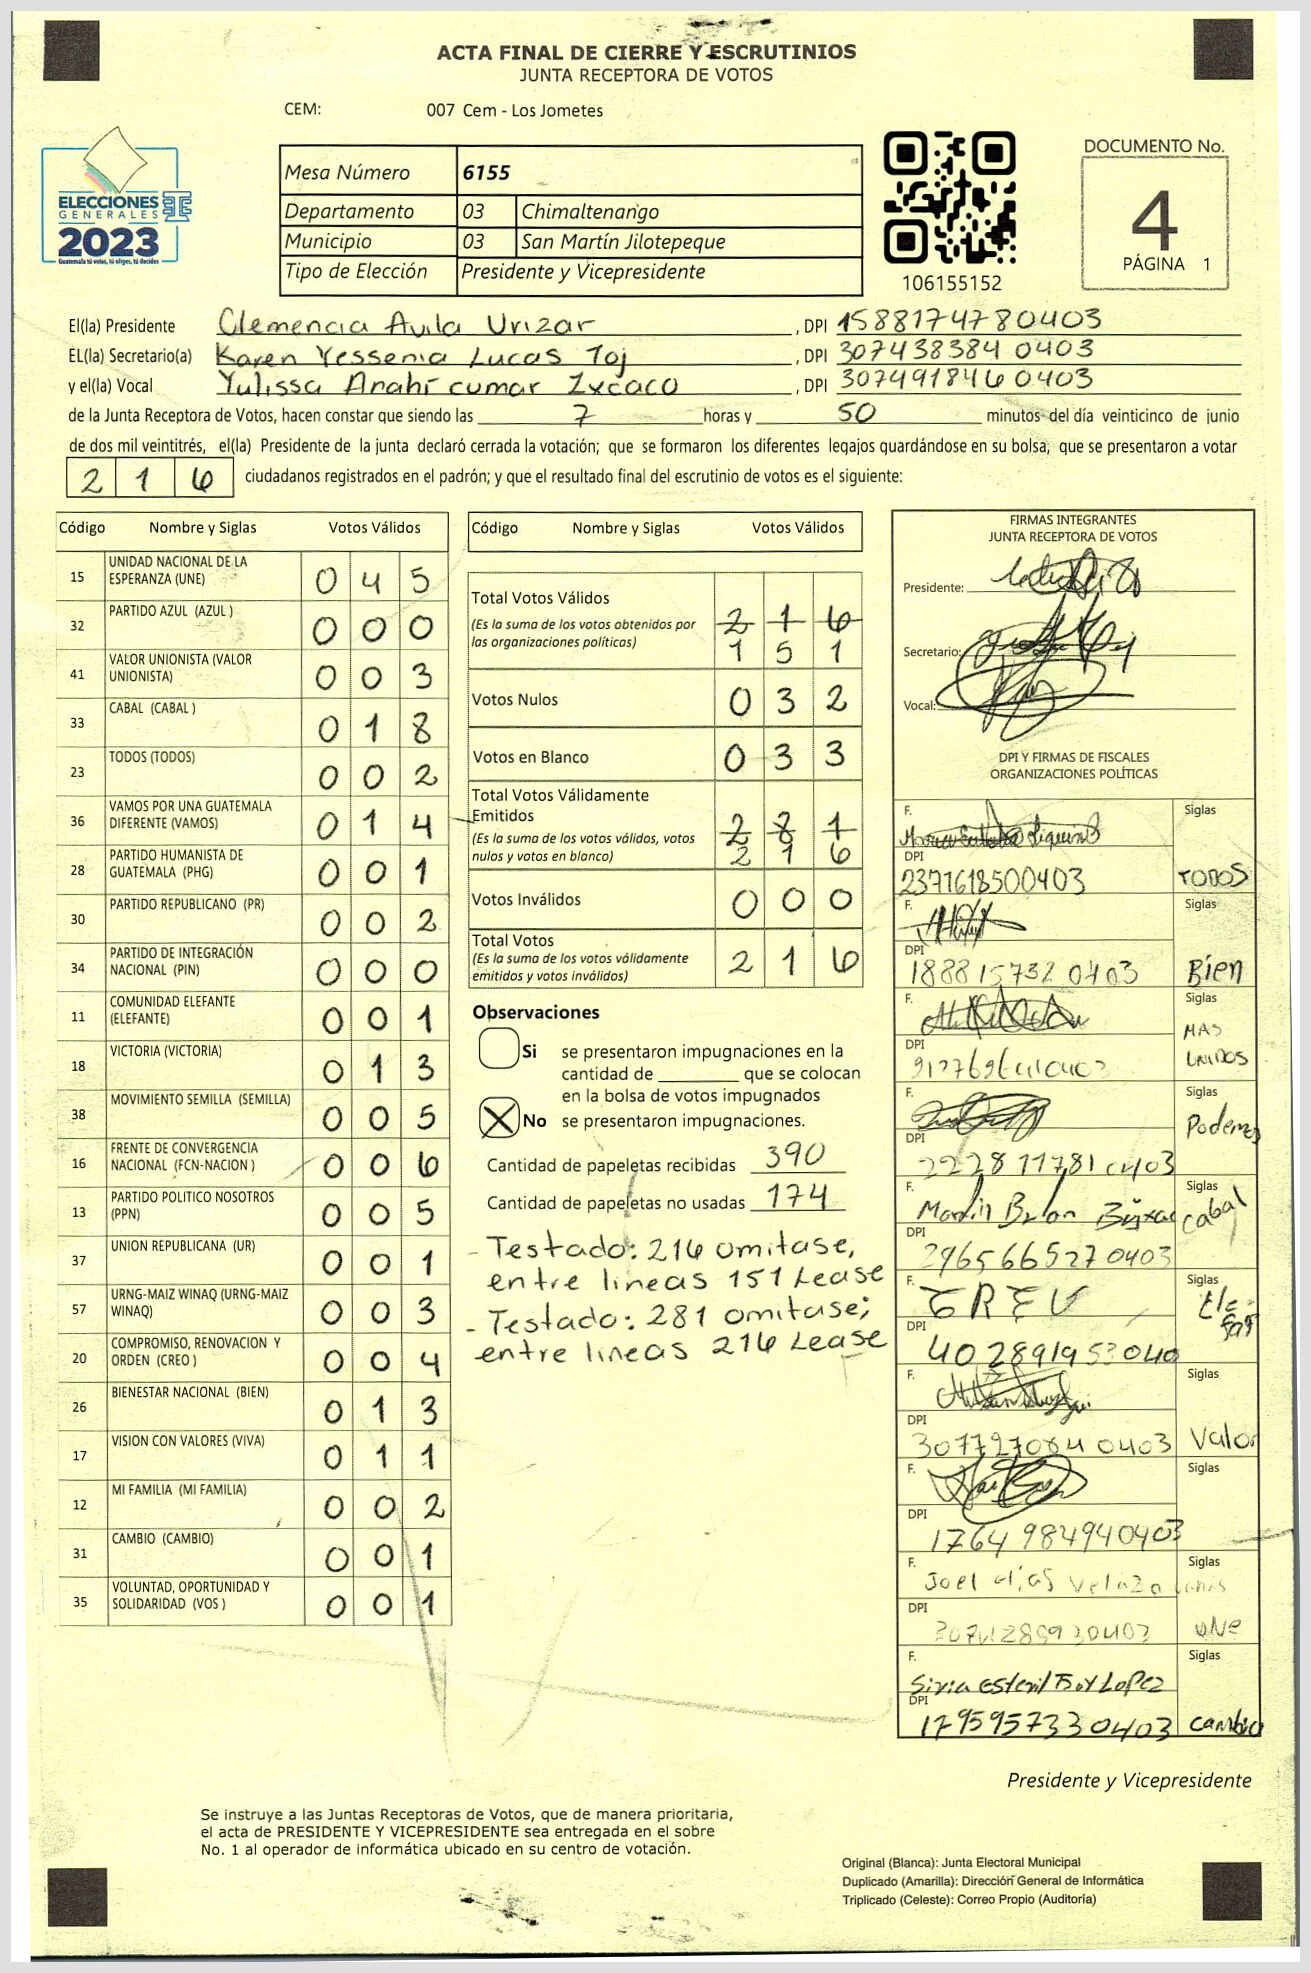 ACTA FINAL DE CIERRE Y ESCRUTINIOS
JUNTA RECEPTORA DE VOTOS
CEM: 007 Cem - Los Jometes
ELECCIONES
GENERALES
2023
Guatemala tú votas, tú eliges, tú decides
Mesa Número 6155
Departamento 03 Chimaltenango
Municipio 03 San Martín Jilotepeque
Tipo de Elección Presidente y Vicepresidente
106155152
DOCUMENTO No.
4
PÁGINA 1
El(la) Presidente Clemencia Avila Urizar , DPI 1588174780403
EL(la) Secretario(a) Karen Yessenia Lucas Toj , DPI 307438384 0403
y el(la) Vocal Yulissa Anahí cumar Ixcaco , DPI 3074918460403
de la Junta Receptora de Votos, hacen constar que siendo las 7 horas y 50 minutos del día veinticinco de junio
de dos mil veintitrés, el(la) Presidente de la junta declaró cerrada la votación; que se formaron los diferentes legajos quardándose en su bolsa, que se presentaron a votar
2 1 6 ciudadanos registrados en el padrón; y que el resultado final del escrutinio de votos es el siguiente:
Código Nombre y Siglas Votos Válidos
15 UNIDAD NACIONAL DE LA ESPERANZA (UNE) 0 4 5
32 PARTIDO AZUL (AZUL ) 0 0 0
41 VALOR UNIONISTA (VALOR UNIONISTA) 0 0 3
33 CABAL (CABAL ) 0 1 8
23 TODOS (TODOS) 0 0 2
36 VAMOS POR UNA GUATEMALA DIFERENTE (VAMOS) 0 1 4
28 PARTIDO HUMANISTA DE GUATEMALA (PHG) 0 0 1
30 PARTIDO REPUBLICANO (PR) 0 0 2
34 PARTIDO DE INTEGRACIÓN NACIONAL (PIN) 0 0 0
11 COMUNIDAD ELEFANTE (ELEFANTE) 0 0 1
18 VICTORIA (VICTORIA) 0 1 3
38 MOVIMIENTO SEMILLA (SEMILLA) 0 0 5
16 FRENTE DE CONVERGENCIA NACIONAL (FCN-NACION ) 0 0 6
13 PARTIDO POLITICO NOSOTROS (PPN) 0 0 5
37 UNION REPUBLICANA (UR) 0 0 1
57 URNG-MAIZ WINAQ (URNG-MAIZ WINAQ) 0 0 3
20 COMPROMISO, RENOVACION Y ORDEN (CREO ) 0 0 4
26 BIENESTAR NACIONAL (BIEN) 0 1 3
17 VISION CON VALORES (VIVA) 0 1 1
12 MI FAMILIA (MI FAMILIA) 0 0 2
31 CAMBIO (CAMBIO) 0 0 1
35 VOLUNTAD, OPORTUNIDAD Y SOLIDARIDAD (VOS ) 0 0 1
Código Nombre y Siglas Votos Válidos
Total Votos Válidos 2 1 6
(Es la suma de los votos obtenidos por
las organizaciones políticas) 1 5 1
Votos Nulos 0 3 2
Votos en Blanco 0 3 3
Total Votos Válidamente
Emitidos 2 8 1
(Es la suma de los votos válidos, votos
nulos y votos en blanco) 2 1 6
Votos Inválidos 0 0 0
Total Votos 2 1 6
(Es la suma de los votos válidamente
emitidos y votos inválidos)
Observaciones
Si se presentaron impugnaciones en la
cantidad de ________ que se colocan
en la bolsa de votos impugnados
No se presentaron impugnaciones.
Cantidad de papeletas recibidas 390
Cantidad de papeletas no usadas 174
- Testado: 216 omitase,
entre lineas 151 Lease
- Testado: 281 omitase;
entre lineas 216 Lease
FIRMAS INTEGRANTES
JUNTA RECEPTORA DE VOTOS
Presidente:
Secretario:
Vocal:
DPI Y FIRMAS DE FISCALES
ORGANIZACIONES POLÍTICAS
F. Siglas
DPI
2371618500403 TODOS
F. Siglas
DPI
1888157320403 Bien
F. Siglas
MAS
DPI UNIDOS
F. Siglas
Podemos
DPI
2228117810403
F. Siglas
Cabal
DPI
2965665270403
F. Siglas
DPI
F. Siglas
DPI
3077270840403 Valor
F. Siglas
DPI
1764984940403
F. Siglas
Joel
DPI
UNe
F. Siglas
Lopez
DPI
1795957330403 cambio
Presidente y Vicepresidente
Se instruye a las Juntas Receptoras de Votos, que de manera prioritaria,
el acta de PRESIDENTE Y VICEPRESIDENTE sea entregada en el sobre
No. 1 al operador de informática ubicado en su centro de votación.
Original (Blanca): Junta Electoral Municipal
Duplicado (Amarilla): Dirección General de Informática
Triplicado (Celeste): Correo Propio (Auditoría)